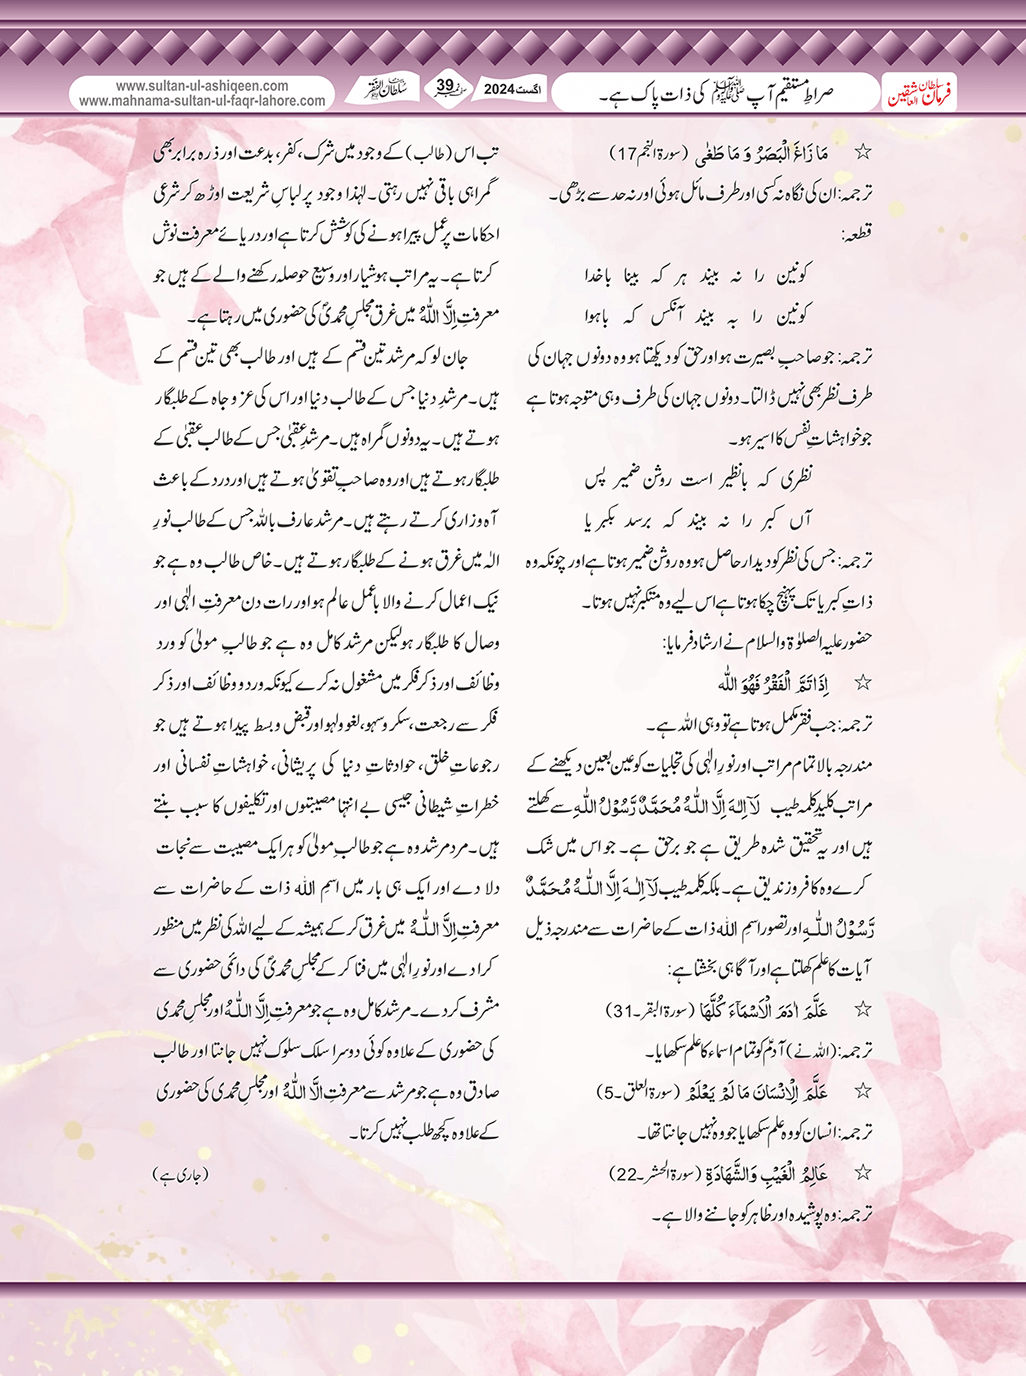 فرمان سلطان العاشقین
صراطِ مستقیم آپ ﷺ کی ذات پاک ہے۔
اگست 2024
صفحہ نمبر 39
سلطان الفقر
www.sultan-ul-ashiqeen.com
www.mahnama-sultan-ul-faqr-lahore.com
☆ مَا زَاغَ الْبَصَرُ وَ مَا طَغٰی (سورۃ النجم 17)
ترجمہ: ان کی نگاہ نہ کسی اور طرف مائل ہوئی اور نہ حد سے بڑھی۔
قطعہ:
کونین را نہ بیند ہر کہ بینا باخدا
کونین را بہ بیند آنکس کہ باہوا
ترجمہ: جو صاحبِ بصیرت ہو اور حق کو دیکھتا ہو وہ دونوں جہان کی
طرف نظر بھی نہیں ڈالتا۔ دونوں جہان کی طرف وہی متوجہ ہوتا ہے
جو خواہشاتِ نفس کا اسیر ہو۔
نظری کہ بانظیر است روشن ضمیر پس
آں کبر را نہ بیند کہ برسد بکبریا
ترجمہ: جس کی نظر کو دیدار حاصل ہو وہ روشن ضمیر ہوتا ہے اور چونکہ وہ
ذاتِ کبریا تک پہنچ چکا ہوتا ہے اس لیے وہ متکبر نہیں ہوتا۔
حضور علیہ الصلوٰۃ والسلام نے ارشاد فرمایا:
☆ اِذَا تَمَّ الْفَقْرُ فَھُوَ اللّٰہ
ترجمہ: جب فقر مکمل ہوتا ہے تو وہی اللہ ہے۔
مندرجہ بالا تمام مراتب اور نورِ الٰہی کی تجلیات کو عین بعین دیکھنے کے
مراتب کلیدِ کلمہ طیب لَآ اِلٰہَ اِلَّا اللّٰہُ مُحَمَّدٌ رَّسُوْلُ اللّٰہِ سے کھلتے
ہیں اور یہ تحقیق شدہ طریق ہے جو برحق ہے۔ جو اس میں شک
کرے وہ کافر و زندیق ہے۔ بلکہ کلمہ طیب لَآ اِلٰہَ اِلَّا اللّٰہُ مُحَمَّدٌ
رَّسُوْلُ اللّٰہِ اور تصور اسم اللہ ذات کے حاضرات سے مندرجہ ذیل
آیات کا علم کھلتا ہے اور آگاہی بخشتا ہے:
☆ عَلَّمَ اٰدَمَ الْاَسْمَآءَ کُلَّھَا (سورۃ البقر۔31)
ترجمہ: (اللہ نے) آدمؑ کو تمام اسماء کا علم سکھایا۔
☆ عَلَّمَ الْاِنْسَانَ مَا لَمْ یَعْلَمْ (سورۃ العلق۔5)
ترجمہ: انسان کو وہ علم سکھایا جو وہ نہیں جانتا تھا۔
☆ عَالِمُ الْغَیْبِ وَالشَّھَادَۃِ (سورۃ الحشر۔22)
ترجمہ: وہ پوشیدہ اور ظاہر کو جاننے والا ہے۔
تب اس (طالب) کے وجود میں شرک، کفر، بدعت اور ذرہ برابر بھی
گمراہی باقی نہیں رہتی۔ لہٰذا وجود پر لباسِ شریعت اوڑھ کر شرعی
احکامات پر عمل پیرا ہونے کی کوشش کرتا ہے اور دریائے معرفت نوش
کرتا ہے۔ یہ مراتب ہوشیار اور وسیع حوصلہ رکھنے والے کے ہیں جو
معرفتِ اِلَّا اللّٰہُ میں غرق مجلسِ محمدیؐ کی حضوری میں رہتا ہے۔
جان لو کہ مرشد تین قسم کے ہیں اور طالب بھی تین قسم کے
ہیں۔ مرشدِ دنیا جس کے طالب دنیا اور اس کی عز و جاہ کے طلبگار
ہوتے ہیں۔ یہ دونوں گمراہ ہیں۔ مرشدِ عقبیٰ جس کے طالب عقبیٰ کے
طلبگار ہوتے ہیں اور وہ صاحبِ تقویٰ ہوتے ہیں اور درد کے باعث
آہ و زاری کرتے رہتے ہیں۔ مرشد عارف باللہ جس کے طالب نورِ
الٰہ میں غرق ہونے کے طلبگار ہوتے ہیں۔ خاص طالب وہ ہے جو
نیک اعمال کرنے والا باعمل عالم ہو اور رات دن معرفتِ الٰہی اور
وصال کا طلبگار ہو لیکن مرشد کامل وہ ہے جو طالبِ مولیٰ کو ورد
وظائف اور ذکر فکر میں مشغول نہ کرے کیونکہ ورد و وظائف اور ذکر
فکر سے رجعت، سکر و سہو، لغو و لہو اور قبض و بسط پیدا ہوتے ہیں جو
رجوعاتِ خلق، حوادثاتِ دنیا کی پریشانی، خواہشاتِ نفسانی اور
خطراتِ شیطانی جیسی بے انتہا مصیبتوں اور تکلیفوں کا سبب بنتے
ہیں۔ مرد مرشد وہ ہے جو طالبِ مولیٰ کو ہر ایک مصیبت سے نجات
دلا دے اور ایک ہی بار میں اسم اللہ ذات کے حاضرات سے
معرفتِ اِلَّا اللّٰہُ میں غرق کر کے ہمیشہ کے لیے اللہ کی نظر میں منظور
کرا دے اور نورِ الٰہی میں فنا کر کے مجلسِ محمدیؐ کی دائمی حضوری سے
مشرف کر دے۔ مرشد کامل وہ ہے جو معرفتِ اِلَّا اللّٰہُ اور مجلسِ محمدی
کی حضوری کے علاوہ کوئی دوسرا سلک سلوک نہیں جانتا اور طالب
صادق وہ ہے جو مرشد سے معرفتِ اِلَّا اللّٰہُ اور مجلسِ محمدی کی حضوری
کے علاوہ کچھ طلب نہیں کرتا۔
(جاری ہے)